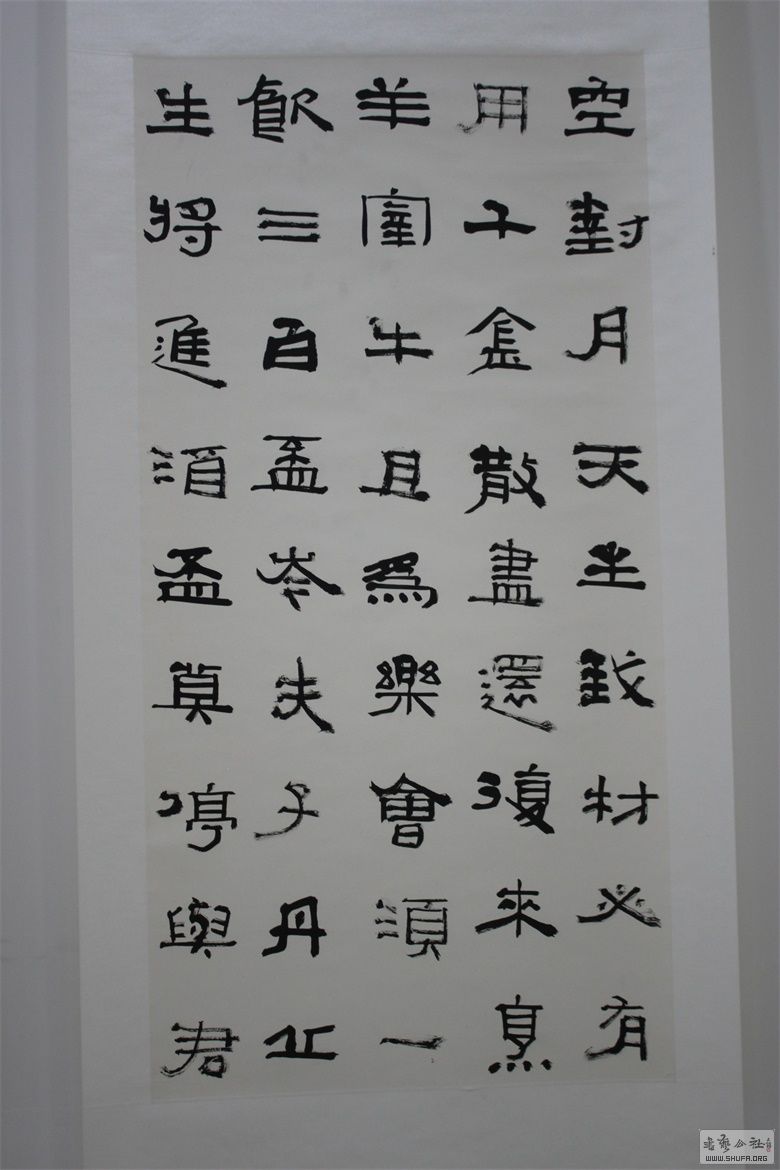 空對月天生我材必有
用千金散盡還復來烹
羊宰牛且爲樂會湏一
飲三百盃岑夫子丹丘
生將進酒盃莫停與君
書藝公社
WWW.SHUFA.ORG